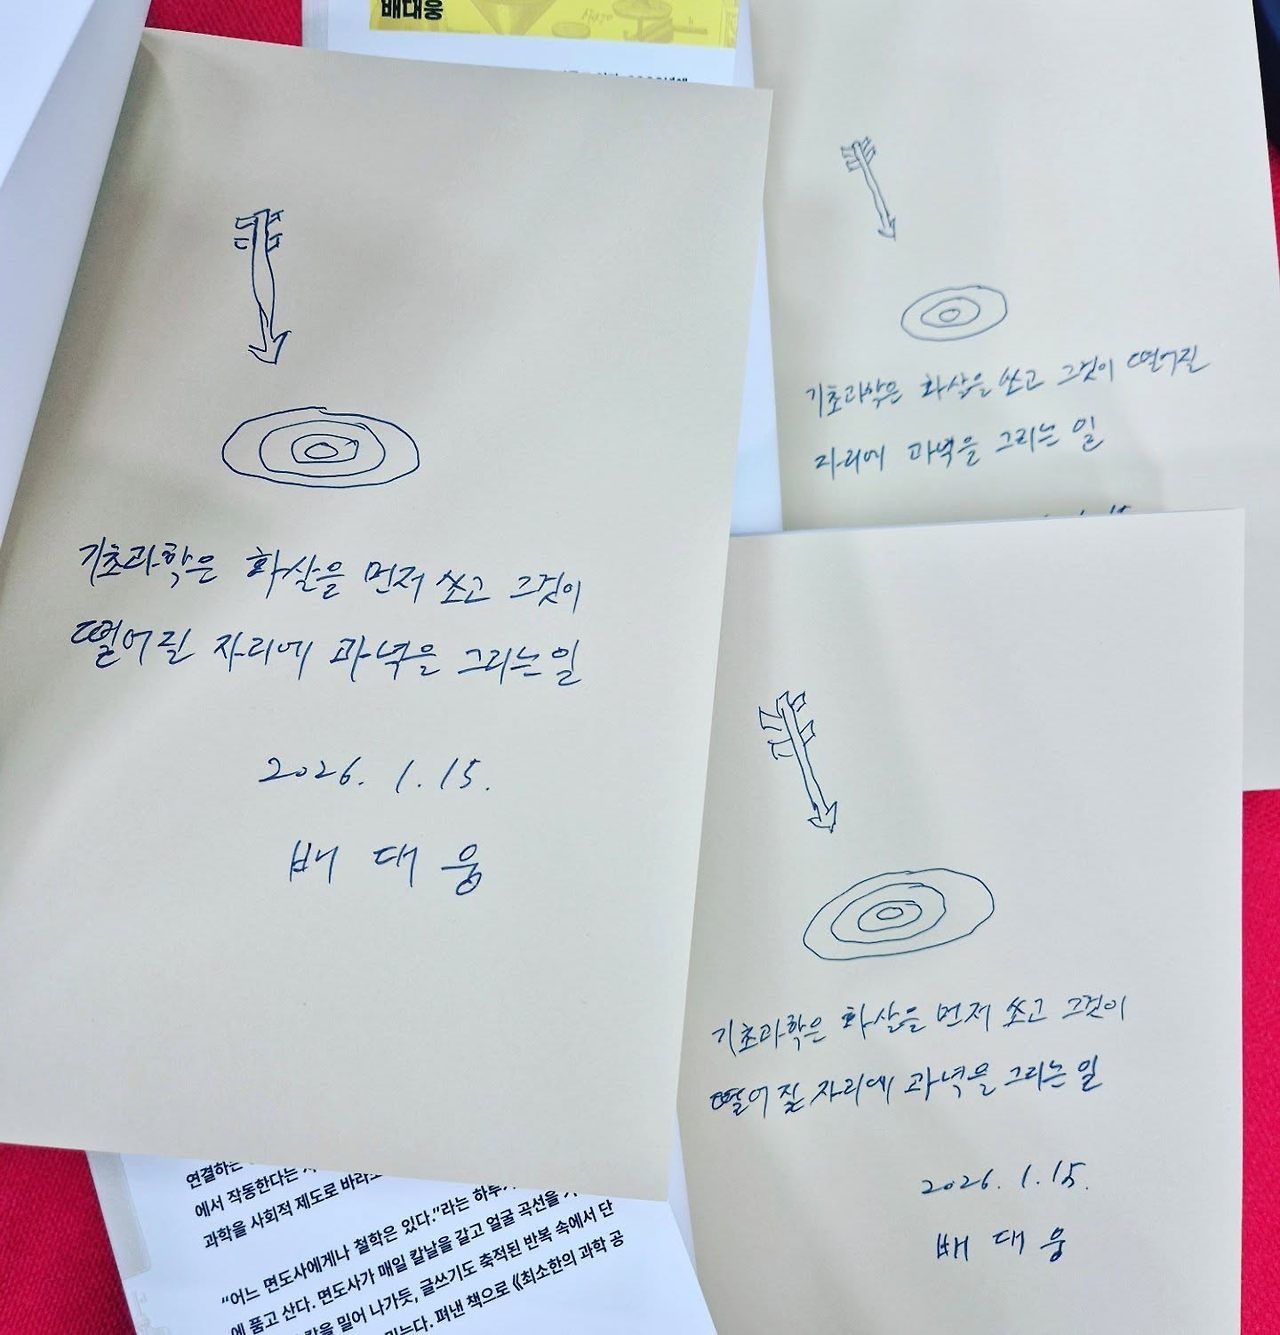 배대웅
기초과학은 화살을 먼저 쏘고 그것이
떨어질 자리에 과녁을 그리는 일
2026. 1. 15.
배 대 웅
기초과학은 화살을 쏘고 그것이 떨어질
자리에 과녁을 그리는 일
기초과학은 화살을 먼저 쏘고 그것이
떨어질 자리에 과녁을 그리는 일
2026. 1. 15.
배 대 웅
연결하는
에서 작동한다는
과학을 사회적 제도로
“어느 면도사에게나 철학은 있다.”라는
에 품고 산다. 면도사가 매일 칼날을 갈고 얼굴 곡선을
밀어 나가듯, 글쓰기도 축적된 반복 속에서 단
펴낸 책으로 《최소한의 과학 공